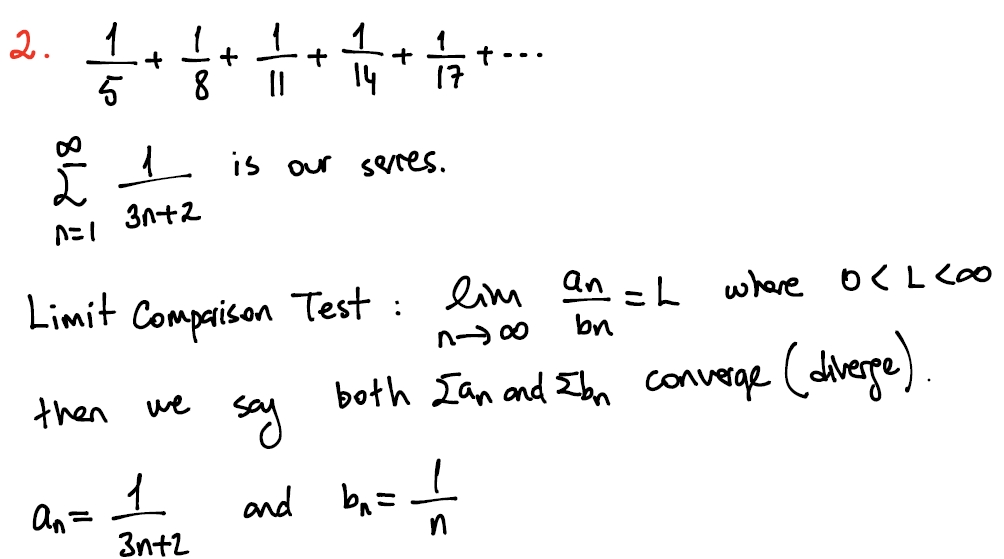 2. 1/5 + 1/8 + 1/11 + 1/14 + 1/17 + ...
∞ Σ n=1 1/(3n+2) is our series.
Limit Comparison Test : lim n→∞ an/bn = L where 0 < L < ∞
then we say both Σan and Σbn converge (diverge).
an = 1/(3n+2) and bn = 1/n